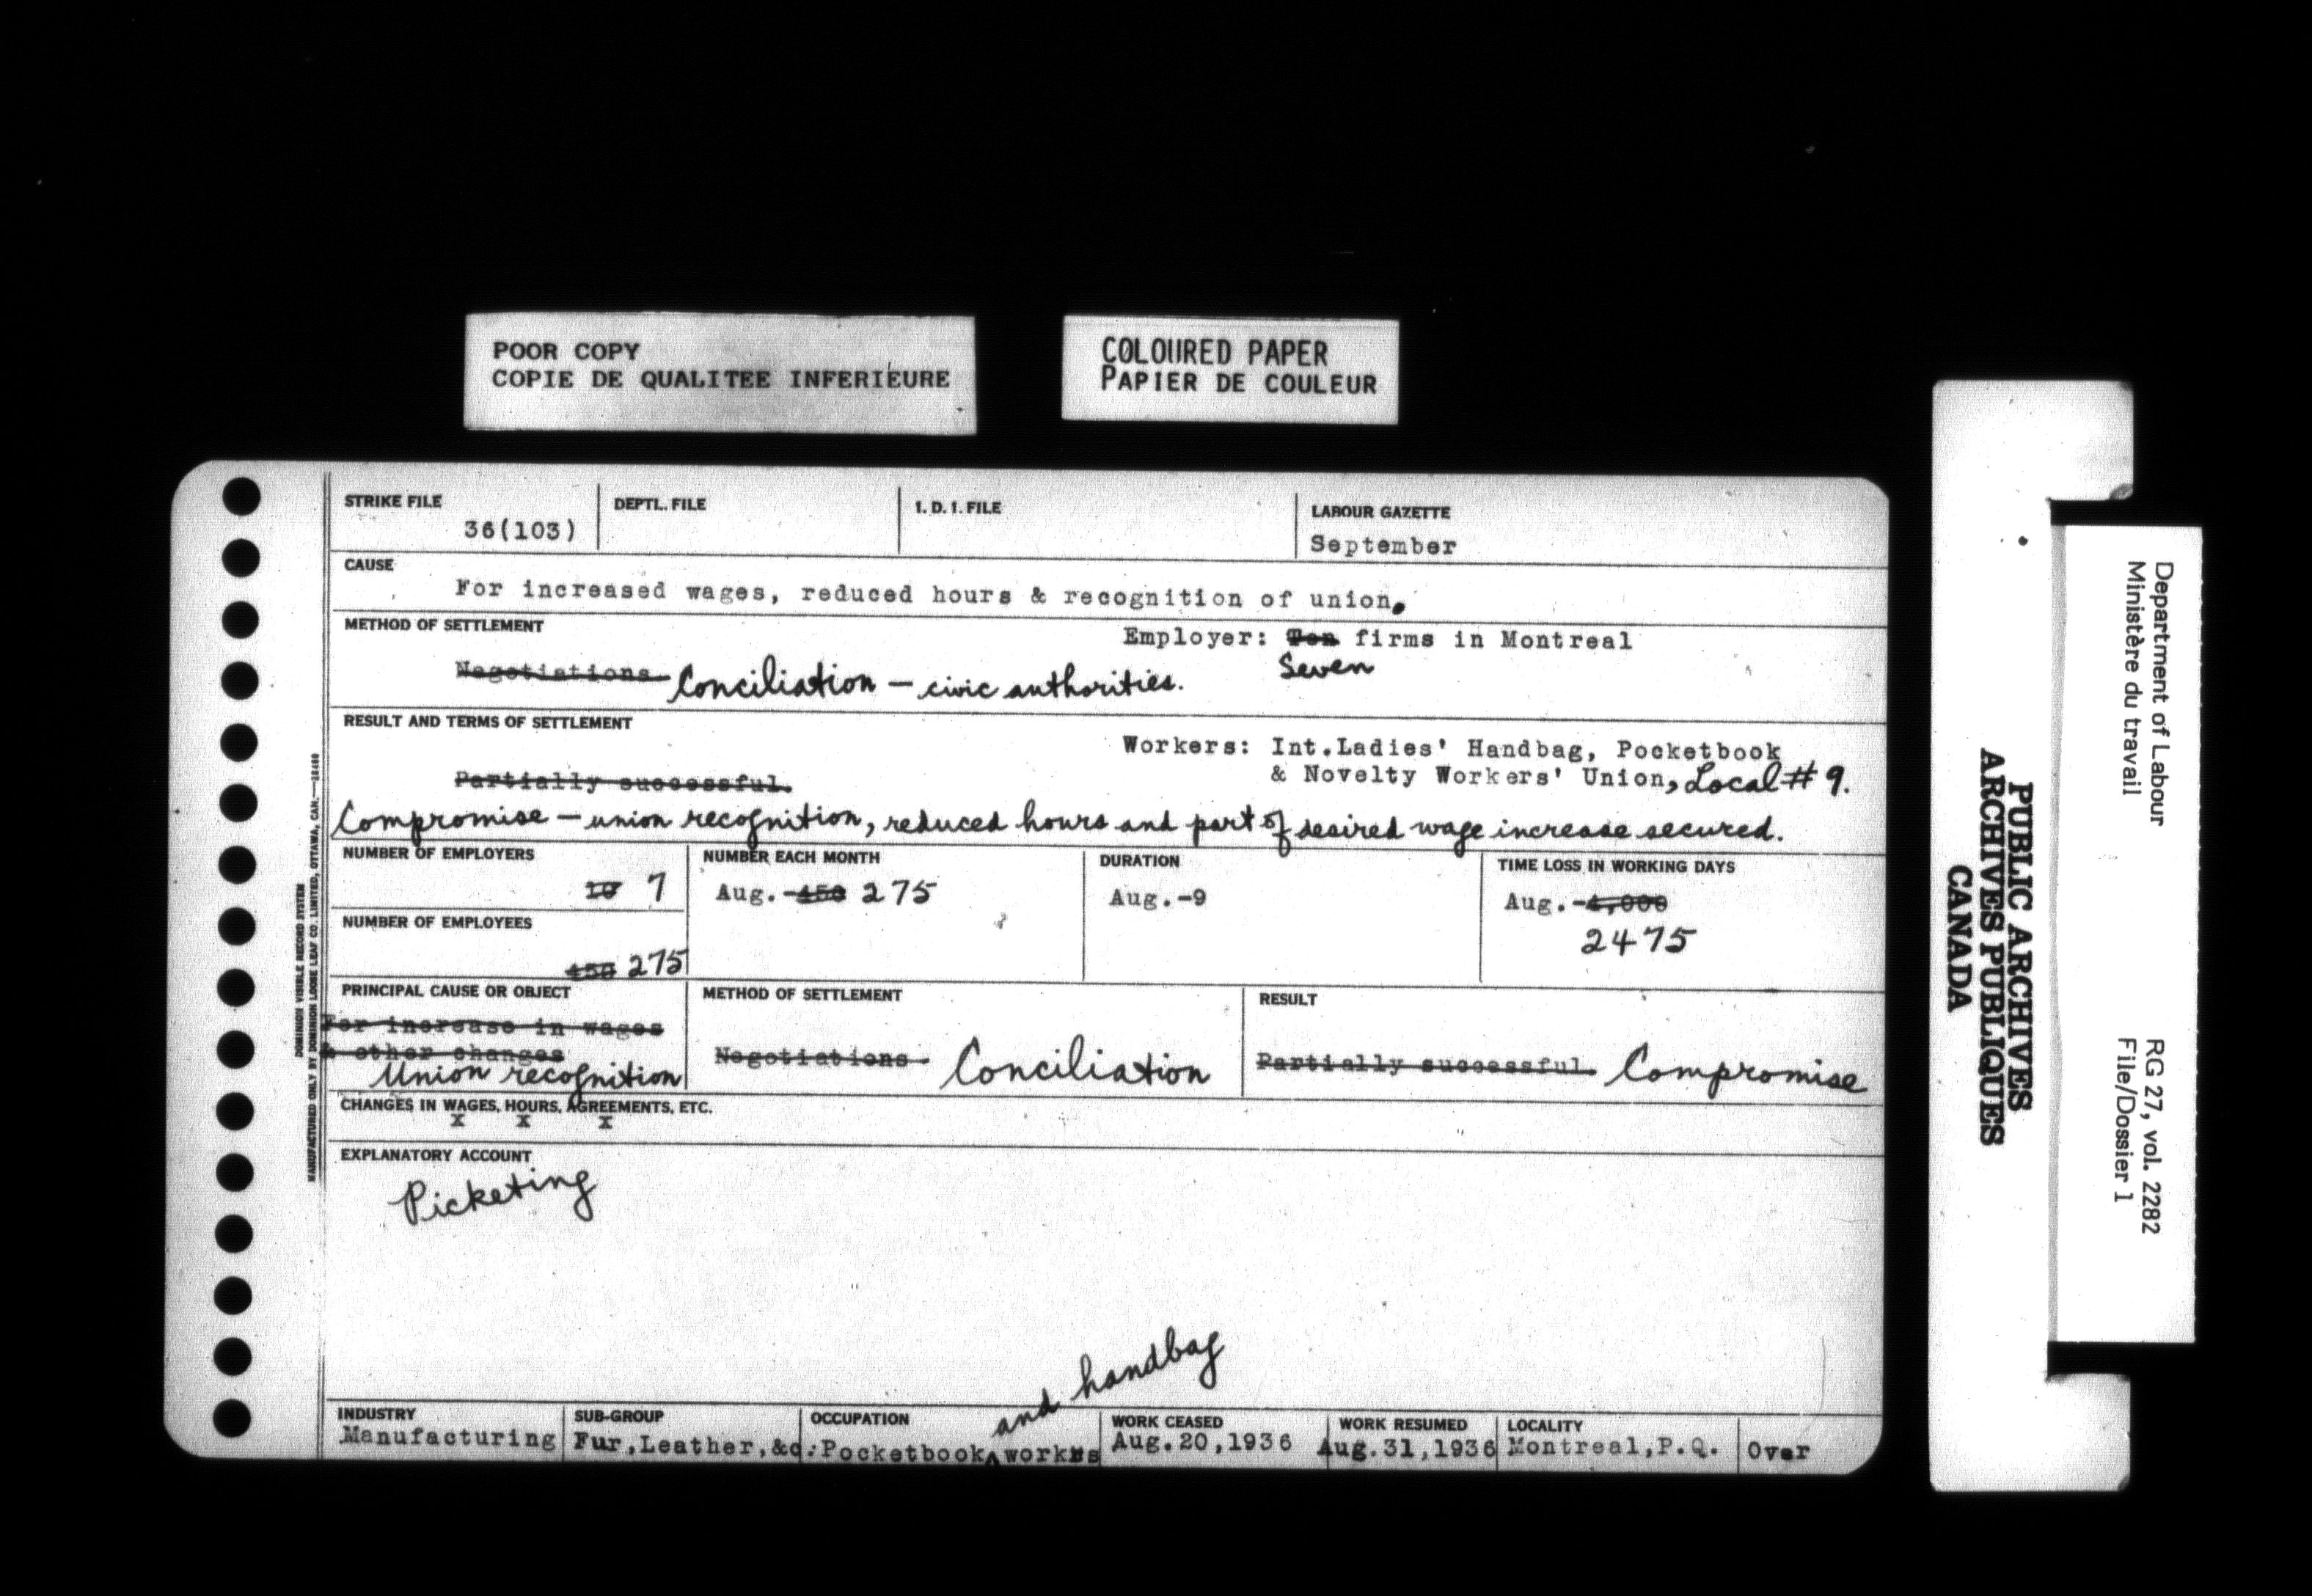 POOR COPY
COPIE DE QUALITEE INFERIEURE
COLOURED PAPER
PAPIER DE COULEUR
STRIKE FILE
36(103)
DEPTL. FILE
I. D. I. FILE
LABOUR GAZETTE
September
CAUSE
For increased wages, reduced hours & recognition of union.
METHOD OF SETTLEMENT
Employer: Ten firms in Montreal
Seven
Negotiations Conciliation – civic authorities.
RESULT AND TERMS OF SETTLEMENT
Workers: Int.Ladies' Handbag, Pocketbook
& Novelty Workers' Union, Local # 9.
Partially successful.
Compromise – union recognition, reduced hours and part of desired wage increase secured.
NUMBER OF EMPLOYERS
10 7
NUMBER EACH MONTH
Aug.-450 275
DURATION
Aug.-9
TIME LOSS IN WORKING DAYS
Aug.-4,000
2475
NUMBER OF EMPLOYEES
450 275
PRINCIPAL CAUSE OR OBJECT
For increase in wages
& other changes
Union recognition
METHOD OF SETTLEMENT
Negotiations Conciliation
RESULT
Partially successful. Compromise
CHANGES IN WAGES, HOURS, AGREEMENTS, ETC.
x x x
EXPLANATORY ACCOUNT
Picketing
and handbag
INDUSTRY
Manufacturing
SUB-GROUP
Fur,Leather,&c.
OCCUPATION
Pocketbook workers
WORK CEASED
Aug.20,1936
WORK RESUMED
Aug.31,1936
LOCALITY
Montreal,P.Q.
Over
DOMINION VISIBLE RECORD SYSTEM
MANUFACTURED ONLY BY DOMINION LOOSE LEAF CO. LIMITED, OTTAWA, CAN.
PUBLIC ARCHIVES
ARCHIVES PUBLIQUES
CANADA
Department of Labour
Ministère du travail
RG 27, vol. 2282
File/Dossier 1